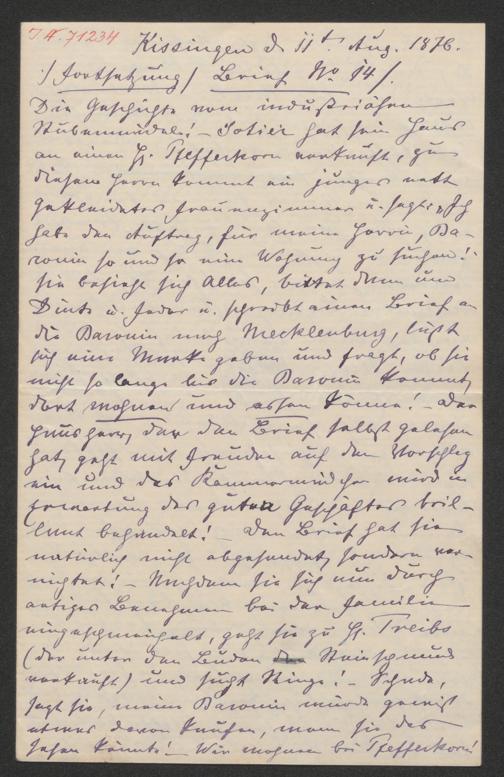 I.N. 71234
Kissingen d. 11t. Aug. 1876.
:/ Fortsetzung / Brief No 14 /.
Die Geschichte vom industriösen
Stubenmädel! – Sotier hat sein Haus
an einen H. Pfefferkorn verkauft, zu
diesem Herrn kommt ein junges nett
gekleidetes Frauenzimmer u. sagt: „Ich
habe den Auftrag, für meine Herrin, Ba-
ronin so und so eine Wohnung zu suchen!
sie besieht sich Alles, bittet dann um
Dinte u. Feder u. schreibt einen Brief an
die Baronin nach Mecklenburg, läßt
sich eine Marke geben und fragt, ob sie
nicht so lange bis die Baronin kommt,
dort wohnen und essen könne! – Der
Hausherr, der den Brief selbst gelesen
hat, geht mit Freuden auf den Vorschlag
ein und das Kammermädchen wird in
Erwartung des guten Geschäftes bril-
lant behandelt! – Den Brief hat sie
natürlich nicht abgesendet, sondern ver-
nichtet! – Nachdem sie sich nun durch
artiges Benehmen bei der Familie
eingeschmeichelt, geht sie zu H. Treibs
(der unter den Buden Steinschmuck
verkauft) und sucht Ringe! – Schade,
sagt sie, meine Baronin würde gewiß
etwas davon kaufen, wenn sie das
sehen könnte! – Wir wohnen bei Pfefferkorn!